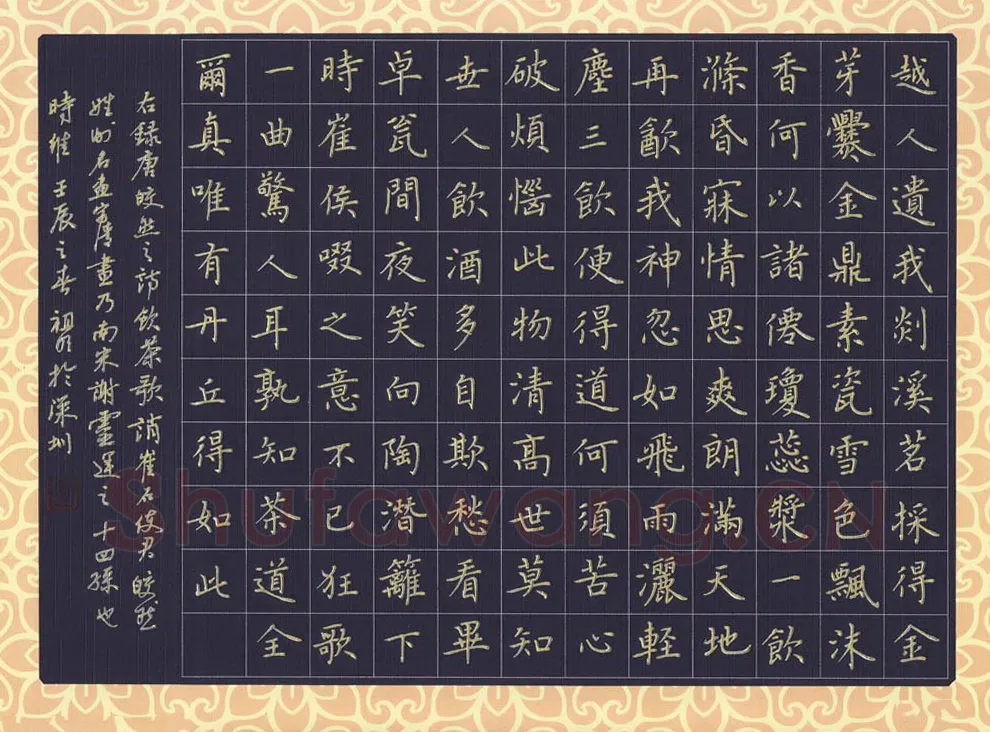 越人遺我剡溪茗採得金
芽爨金鼎素瓷雪色飄沫
香何以諸僊瓊蕊漿一飲
滌昏寐情思爽朗滿天地
再歠我神忽如飛雨灑軽
塵三飲便得道何須苦心
破煩惱此物清高世莫知
世人飲酒多自欺愁看畢
卓瓮間夜笑向陶潛籬下
時崔侯啜之意不已狂歌
一曲驚人耳孰知茶道全
爾真唯有丹丘得如此
右録唐皎然之詩飲茶歌誚崔石使君皎然
姓謝名晝字清晝乃南宋謝靈運之十四孫也
時維壬辰之春於深圳
Shufawang.CN